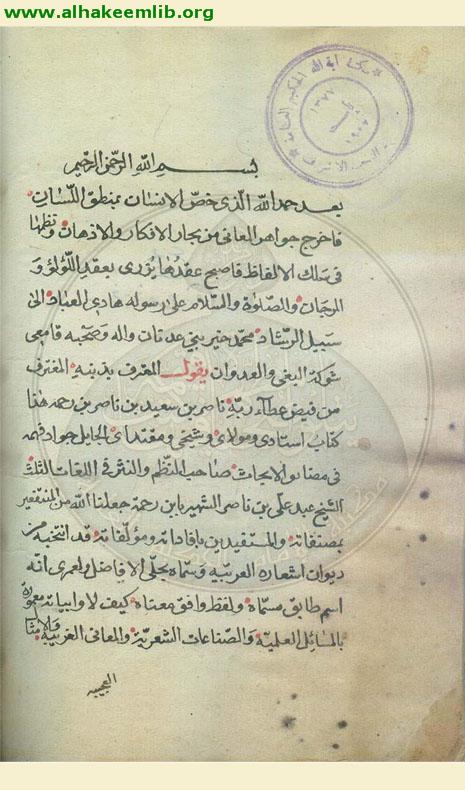 www.alhakeemlib.org
بسم الله الرحمن الرحيم
بعد حمد الله الذى خصّ الانسان بمنطق اللسان
فاخرج جواهر المعانى من بحار الافكار والاذهان ونظمها
فى سلك الالفاظ فاصبح عقدها يزرى بعقد اللؤلؤ و
المرجان والصلوة والسلام على رسوله هادي العباد الى
سبيل الرشاد محمد خير بني عدنان واله وصحبه قامعى
شوكة البغى والعدوان يقول المعترف بذنبه المغترف
من فيض عطاء ربه ناصر بن سعيد بن ناصر بن رحمة هذا
كتاب استادى ومولاى وشيخى ومقتداى الجايل جواد فهمه
فى مضايق الابحاث صاحب النظم والنثر فى اللغات الثلث
الشيخ عبد على بن ناصر الشهير بابن رحمة جعلنا الله من
بمصنفاته والمستفيدين بافاداته ومؤلفاته قد انتخبه من
ديوان اشعاره العربيه وسماه بجلى الافاضل ولعمرى انه
اسم طابق مسماه ولفظ وافق معناه كيف لا وابياته معمورة
بالمسائل العلمية والصناعات الشعرية والمعانى الغريبة
العجيبه